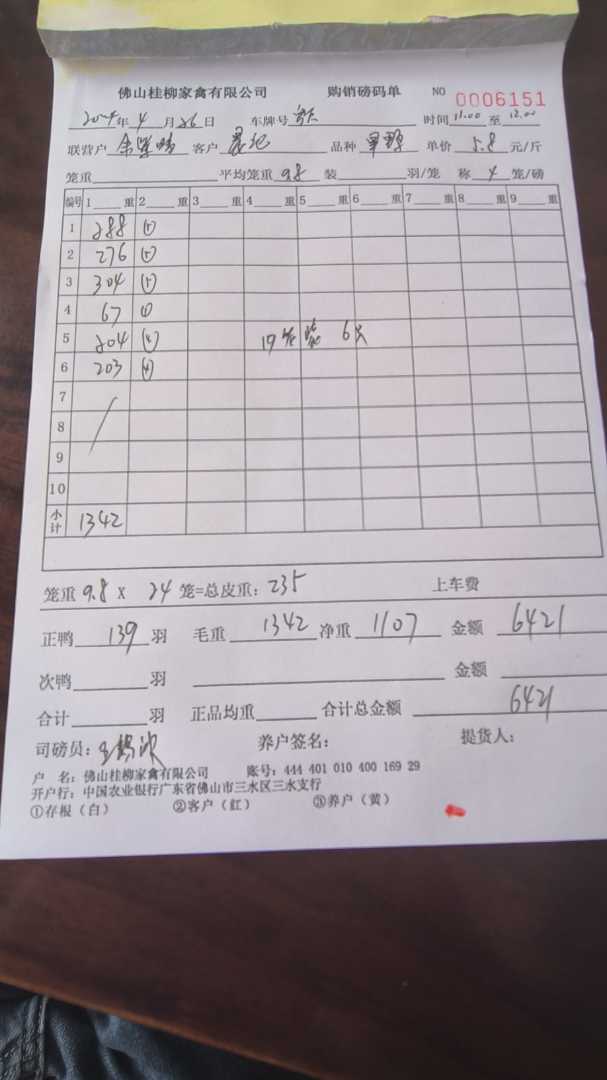 佛山桂柳家禽有限公司 购销磅码单 NO 0006151
年 4 月 26 日 车牌号 时间 11.00 至 12.00
联营户 客户 品种 单价 5.8 元/斤
笼重 平均笼重 9.8 装 羽/笼 称 4 笼/磅
编号 1 重 2 重 3 重 4 重 5 重 6 重 7 重 8 重 9 重
1 288 (5)
2 276 (5)
3 304 (5)
4 67 (1)
5 204 (4) 19 装 6只
6 203 (4)
7
8
9
10
小计 1342
笼重 9.8 X 24 笼=总皮重: 235 上车费
正鸭 139 羽 毛重 1342 净重 1107 金额 6421
次鸭 羽 金额
合计 羽 正品均重 合计总金额 6421
司磅员: 养户签名: 提货人:
户 名: 佛山桂柳家禽有限公司 账号: 444 401 010 400 169 29
开户行: 中国农业银行广东省佛山市三水区三水支行
①存根(白) ②客户(红) ③养户(黄)